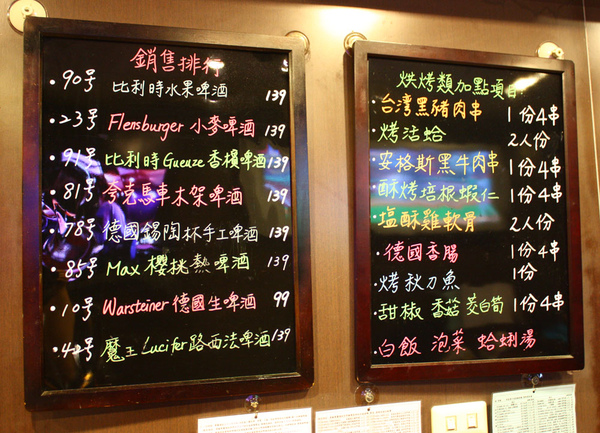 銷售排行
·90号 比利時水果啤酒 139
·23号 Flensburger 小麥啤酒 139
·91号 比利時Gueuze香檳啤酒 139
·81号 夸克馬車木架啤酒 139
·78号 德國錫陶杯手工啤酒 139
·85号 Max 櫻桃熱啤酒 139
·10号 Warsteiner 德國生啤酒 99
·42号 魔王Lucifer路西法啤酒 139
烘烤類加點項目:
·台湾黑豬肉串 1份4串
·烤活蛤 2人份
·安格斯黑牛肉串 1份4串
·酥烤培根蝦仁 1份4串
·塩酥雞軟骨 2人份
·德國香腸 1份4串
·烤秋刀魚 1份
·甜椒 香菇 茭白筍 1份4串
·白飯 泡菜 蛤蜊湯